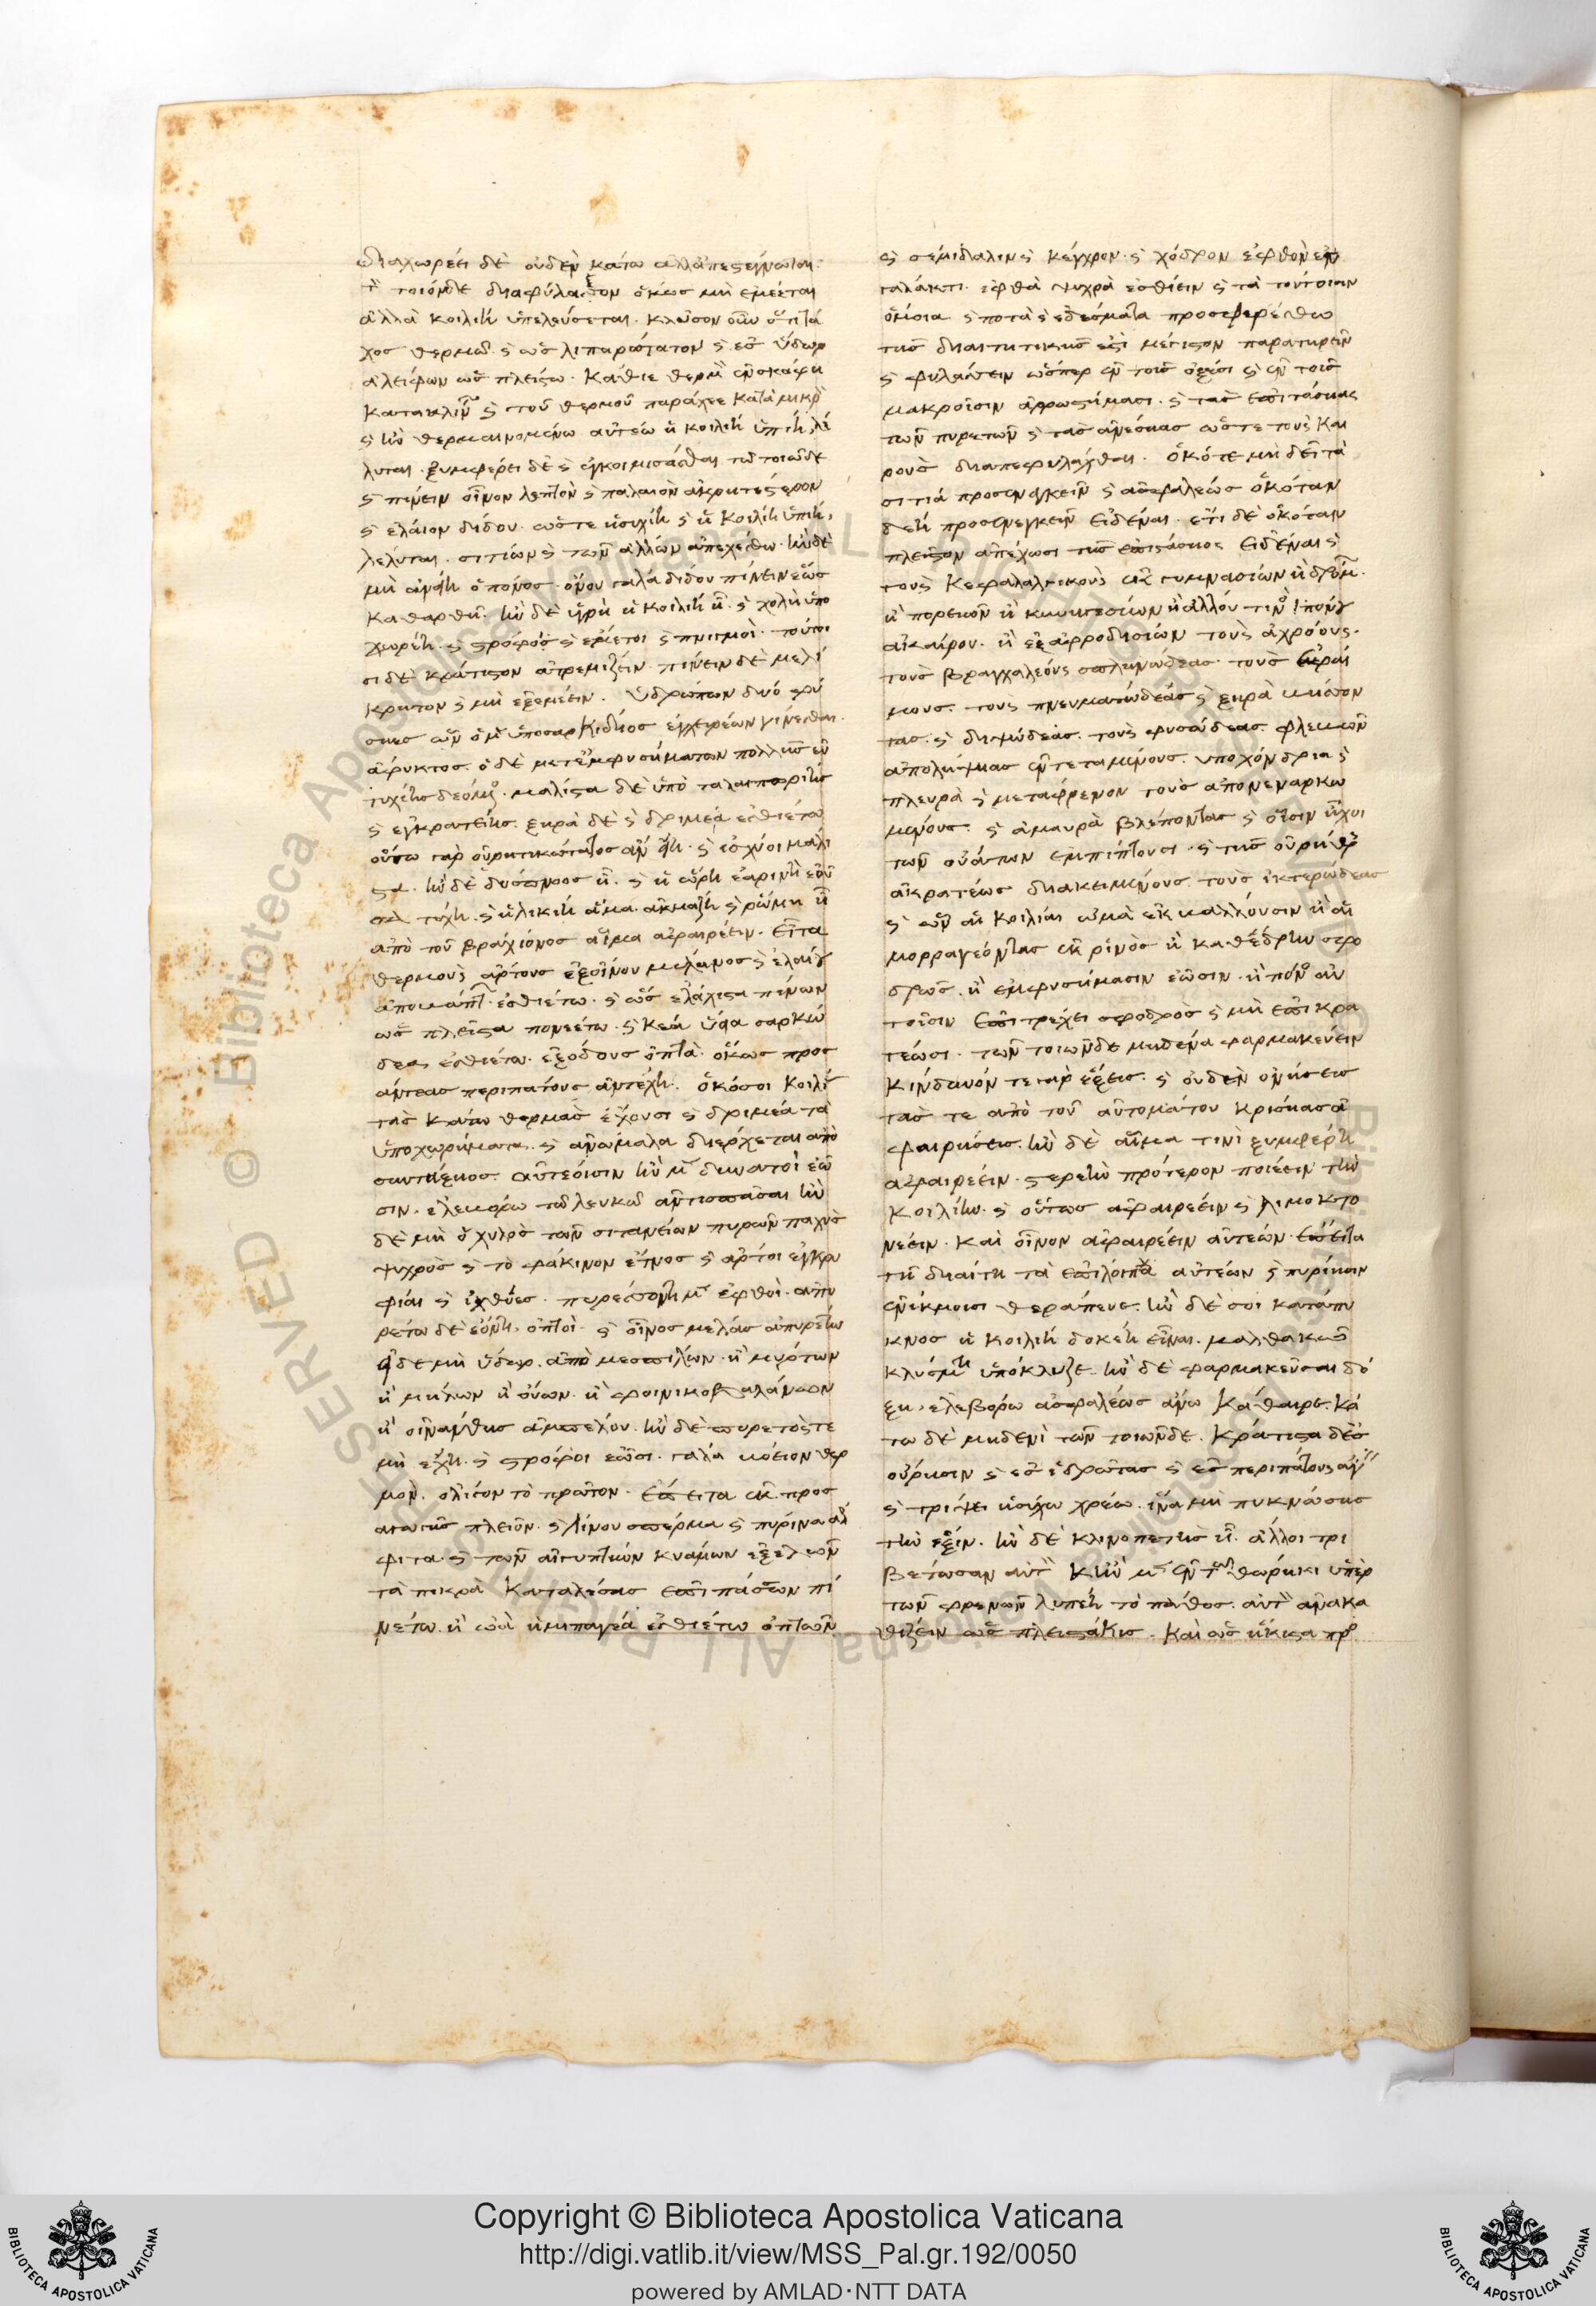 διαχωρέει δὲ οὐδὲν κάτω ἀλλ' ἀπεστέγνωται.
τὸ τοιόνδε διαφύλασσον ὅκως μὴ ἐμέεται
ἀλλὰ κοιλίη ὑπελεύσεται. κλύσον οὖν ὅτι τά
χος θερμῶ. καὶ ὡς λιπαρώτατον καὶ ἐς ὕδωρ
ἀλείφων ὡς πλείστω. κάθιε θερμὸν ἐν σκάφη
κατακλίνων καὶ τοῦ θερμοῦ παράχεε κατὰ μικρὸν
καὶ ἢν θερμαινομένω αὐτέω ἡ κοιλίη ὑπίῃ, λέ
λυται. ξυμφέρει δὲ καὶ ἐγκοιμίσασθαι τῶ τοιῶδε
καὶ πίνειν οἶνον λεπτὸν καὶ παλαιὸν ἀκρητέστερον
καὶ ἔλαιον δίδου. ὥστε ἡσυχίη καὶ ἡ κοιλίη ὑπίῃ,
λέλυται. σιτίων καὶ τῶν ἄλλων ἀπεχέσθω. ἢν δὲ
μὴ ὁ πόνος. ὄνου γάλα δίδου πίνειν ἕως
καθαρθῆ. ἢν δὲ ὑγρὴ ἡ κοιλίη ἦ. καὶ χολὴ ὑπο
χωρέη. καὶ στρόφος καὶ ἔμετοι καὶ πνιγμοί. τούτοι
σι δὲ κράτιστον ἀτρεμίζειν. πίνειν δὲ μελί
κρητον καὶ μὴ ἐξεμέειν. ὑδρώπων δύο φύ
σιες ὧν ὁ μὲν ὑποσαρκίδιος ἐγχειρέων γίνεσθαι.
ἄφυκτος. ὁ δὲ μετ' ἐμφυσημάτων πολλῆς εὐ
τυχίης δεόμενος. μάλιστα δὲ ὑπὸ ταλαιπωρίης
καὶ ἐγκρατείης. ξηρὰ δὲ καὶ δριμέα ἐσθιέτω
οὕτω γὰρ οὐρητικώτατος ἂν εἴη. καὶ ἰσχύοι μάλι
στα. ἢν δὲ δύσπνοος ἦ. καὶ ἡ ὥρη ἐαρινὴ ἐοῦ
σα τύχη. καὶ ἡλικίη ἅμα ἀκμάζη καὶ ῥώμη ἦ
ἀπὸ τοῦ βραχίονος αἷμα ἀφαιρέειν. εἶτα
θερμοὺς ἄρτους ἐξ οἴνου μέλανος καὶ ἐλαίου
ἐσθιέτω. καὶ ὡς ἐλάχιστα πίνων
ὡς πλεῖστα πονεέτω. καὶ κρέα ὕεια σαρκώ
δεα ἐσθιέτω. ἐξ ὄξους ὀπτὰ. ὅκως προς
άντεας περιπάτους ἀντέχη. ὁκόσοι κοιλίας
τὰς κάτω θερμὰς ἔχουσι καὶ δριμέα τὰ
ὑποχωρήματα. καὶ ἀνώμαλα διέρχεται ἀπὸ
συντήξιος. αὐτέοισιν ἢν μὲν δυνατοὶ ἔω
σιν. ἐλεβόρω τῶ λευκῶ ἀντισπάσαι ἢν
δὲ μὴ ὁ χυλὸς τῶν σιτανείων πυρῶν παχὺς
ψυχρὸς καὶ τὸ φάκινον ἔτνος καὶ ἄρτοι ἐγκρυ
φίαι καὶ ἰχθύες. πυρέσσοντι μὲν ἑφθοὶ. ἀπυ
ρέτω δὲ ἐόντι, ὀπτοί. καὶ οἶνος μέλας ἀπυρέτω
εἰ δὲ μὴ ὕδωρ. ἀπὸ μεσπίλων. ἢ μύρτων
ἢ μήλων ἢ οὔων. ἢ φοινικοβαλάνων
ἢ οἰνάνθης ἀμπέλου. ἢν δὲ πυρετός τε
μὴ ἔχη. καὶ στρόφοι ἔωσι. γάλα ὄνειον θερ
μὸν. ὀλίγον τὸ πρῶτον. ἔπειτα ἐκ προς
αγωγῆς πλεῖον. καὶ λίνου σπέρμα καὶ πύρινα ἄλ
φιτα. καὶ τῶν αἰγυπτίων κυάμων ἐξελὼν
τὰ πικρὰ καταλέσας ἐπιπάσσων πι
νέτω. ἢ ὠὰ ἡμιπαγέα ἐσθιέτω ὀπτῶν
καὶ σεμίδαλιν καὶ κέγχρον. καὶ χόδρον ἑφθὸν ἐν
γάλακτι. ἑφθὰ ψυχρὰ ἐσθίειν καὶ τὰ τούτοισιν
ὅμοια καὶ ποτὰ καὶ ἐδέσματα προσφερέσθω
τῆς διαιτητικῆς ἐστι μέγιστον παρατηρεῖν
καὶ φυλάσσειν ὥσπερ ἐν τοῖς ὀξέσι καὶ ἐν τοῖς
μακροῖσιν ἀρρωστήμασι. καὶ τὰς ἐπιτάσιας
τῶν πυρετῶν καὶ τὰς ἀνέσιας ὥστε τοὺς και
ροὺς διαπεφυλάχθαι. ὁκότε μὴ δεῖ τὰ
σιτία προσενεγκεῖν καὶ ἀσφαλέως ὁκόταν
δέη προσενεγκεῖν εἰδέναι. ἔτι δὲ ὁκόταν
πλεῖστον ἀπέχωσι τῆς ἐπιτάσιος εἰδέναι καὶ
τοὺς κεφαλαλγικοὺς ἐκ γυμνασίων ἢ δρόμων.
ἢ πορειῶν ἢ κυνηγεσίων ἢ ἄλλου τινὸς πόνου
ἀκαίρου. ἢ ἐξ ἀφροδισίων τοὺς ἀχρόους.
τοὺς βραγχαλέους σπληνώδεας. τοὺς λιφαί
μους. τοὺς πνευματώδεας καὶ ξηρὰ
καὶ διψώδεας. τοὺς φυσώδεας. φλεβῶν
ἀπολήψιας ἐντεταμένους. ὑποχόνδρια καὶ
πλευρὰ καὶ μετάφρενον τοὺς ἀπονεναρκω
μένους. καὶ ἀμαυρὰ βλέποντας καὶ οἷσιν ἦχοι
τῶν οὐάτων ἐμπίπτουσι. καὶ τῆς οὐρήθρης
ἀκρατέως διακειμένους. τοὺς ἰκτερώδεας
καὶ ὧν αἱ κοιλίαι ὠμὰ ἐκβάλλουσιν ἢ αἱ
μορραγέοντας ἐκ ῥινὸς ἢ καθ' ἕδρην σφο
δρῶς. ἢ ἐμφυσήμασιν ἔωσιν. ἢ πόνος αὐ
τοῖσιν ἐπιτρέχει σφοδρὸς καὶ μὴ ἐπικρα
τέωσι. τῶν τοιῶνδε μηδένα φαρμακεύειν
κίνδυνόν τε γὰρ ἕξεις. καὶ οὐδὲν ὀνήσεις
τάς τε ἀπὸ τοῦ αὐτομάτου κρίσιας ἀ
φαιρήσεις. ἢν δὲ αἷμα τινὶ ξυμφέρη
ἀφαιρέειν. στερεὴν πρότερον ποιέειν τὴν
κοιλίην. καὶ οὕτως ἀφαιρέειν καὶ λιμοκτο
νέειν. καὶ οἶνον ἀφαιρέειν αὐτέων. ἔπειτα
τῆ διαίτη τὰ ἐπίλοιπα αὐτέων καὶ πυρίησιν
ἐνίκμοισι θεράπευε. ἢν δὲ σοι κατάπυ
κνος ἡ κοιλίη δοκέη εἶναι. μαλθακῶ
κλύσματι ὑπόκλυζε. ἢν δὲ φαρμακεῦσαι δό
ξη, ἐλεβόρω ἀσφαλέως ἄνω κάθαιρε. κά
τω δὲ μηδενὶ τῶν τοιῶνδε. κράτιστα δὲ ἐς
οὔρησιν καὶ ἐς ἱδρῶτας καὶ ἐς περιπάτους
καὶ τρίψει ἡσύχω χρέω. ἵνα μὴ πυκνώσης
τὴν ἕξιν. ἢν δὲ κλινοπετὴς ἦ. ἄλλοι τρι
βέτωσαν αὐτὸν κἢν μὲν ἐν τῶ θώρηκι ὑπὲρ
τῶν φρενῶν λυπέη τὸ πάθος. αὐτὸν ἀνακα
θίζειν ὡς πλειστάκις. καὶ ὡς ἥκιστα προς